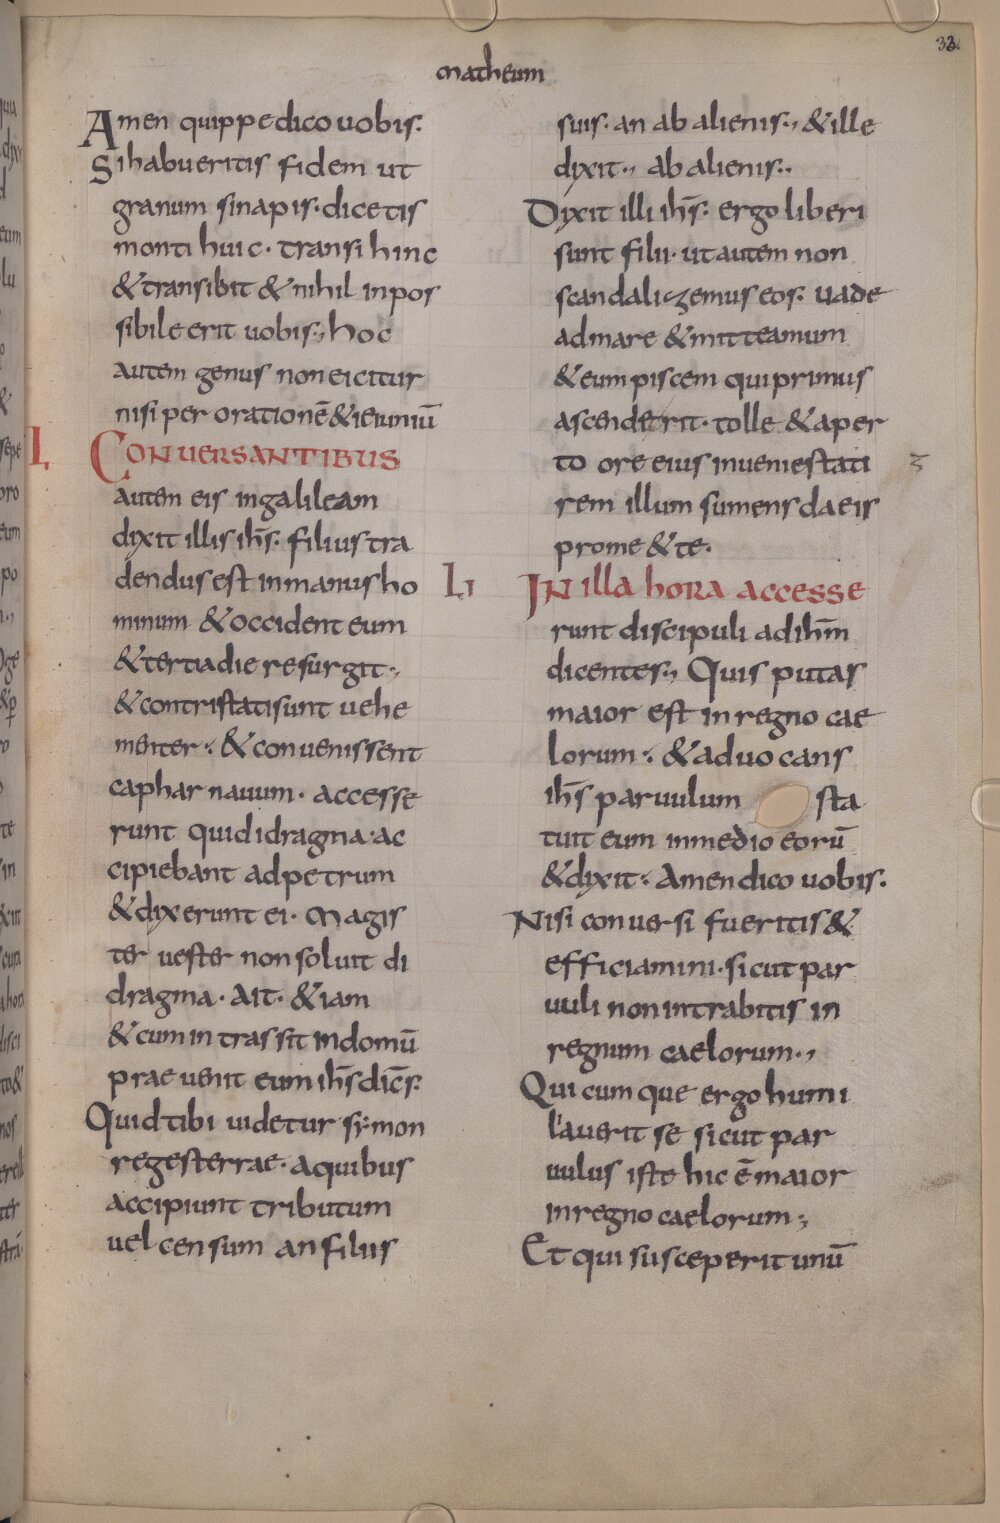 33.
matheum
Amen quippe dico uobis.
Si habueritis fidem ut
granum sinapis · dicetis
monti huic · transi hinc
& transibit & nihil inpos
sibile erit uobis., hoc
autem genus non eicitur
nisi per orationē & ieiuniū
L CONUERSANTIBUS
autem eis in galileam
dixit illis ihs̄. filius tra
dendus est in manus ho
minum & occident eum
& tertia die resurgit.,
& contristati sunt uehe
menter: & conuenissent
capharnauum · accesse
runt qui didragma · ac
cipiebant ad petrum
& dixerunt ei · Magis
ter uester non soluit di
dragma · Ait · & iam
& cum intrassit in domū
praeuenit eum ihs̄ dicēs.
Quid tibi uidetur symon
reges terrae · a quibus
accipiunt tributum
uel censum an filiis
suis · an ab alienis., & ille
dixit., ab alienis..
Dixit illi ihs̄. ergo liberi
sunt filii · ut autem non
scandalizemus eos. uade
ad mare & mitte amum
& eum piscem qui primus
ascenderit · tolle & aper
to ore eius inuenies tati
rem illum sumens da eis
pro me & te ·
LI IN illa hora accesse
runt discipuli ad ihm̄
dicentes., Quis putas
maior est in regno cae
lorum: & aduocans
ihs̄ paruulum sta
tuit eum in medio eorū
& dixit: Amen dico uobis.
Nisi conuersi fueritis &
efficiamini · sicut par
uuli non intrabitis in
regnum caelorum.,
Quicumque ergo humi
lauerit se sicut par
uulus iste hic ē maior
in regno caelorum.,
Et qui susceperit unū